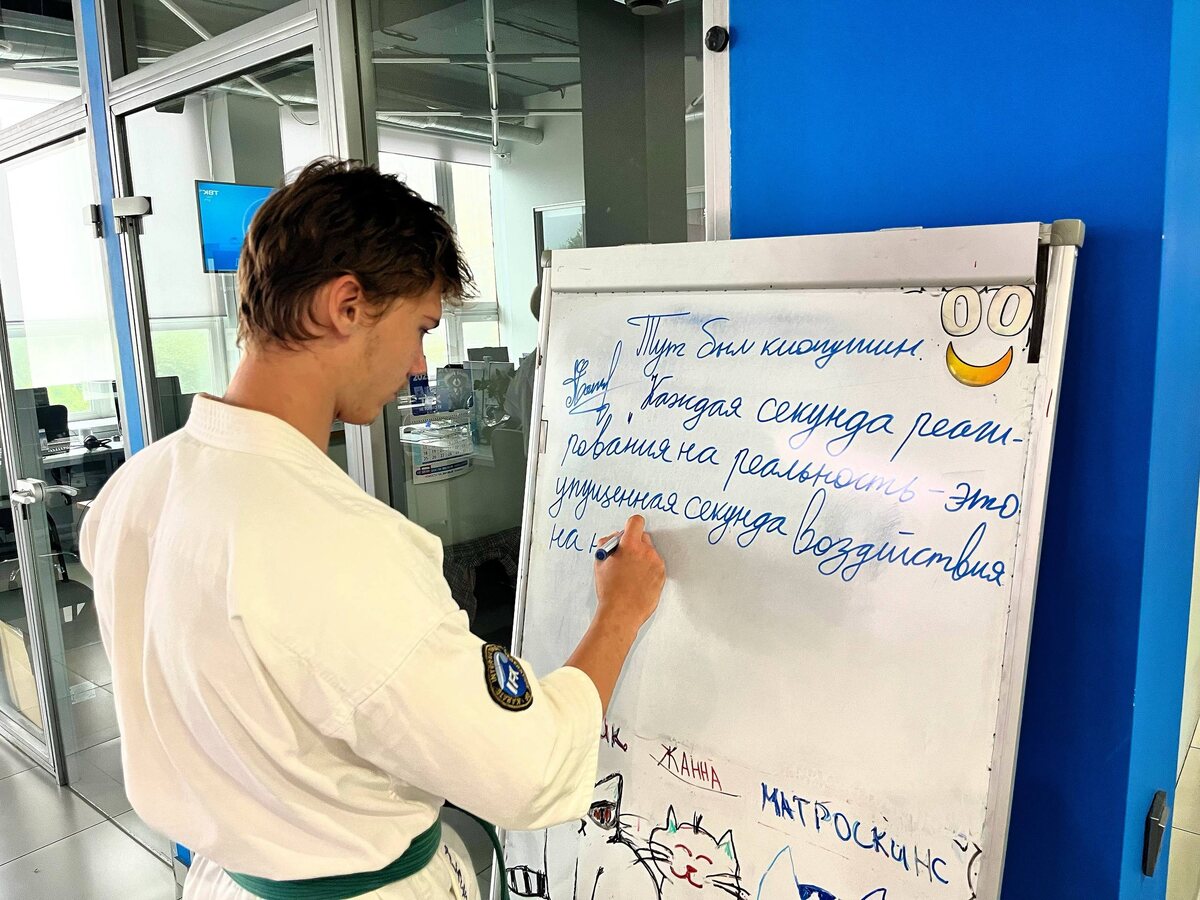 Тут был киокушин.
"Каждая секунда реаги-
рования на реальность – это
упущенная секунда воздйствия
на н
ЖАННА
МАТРОСКИНС